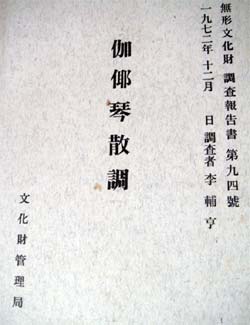 無形文化財 調査報告書 第九四號
一九七二年 十二月 日 調査者 李輔亨
伽倻琴散調
文化財管理局